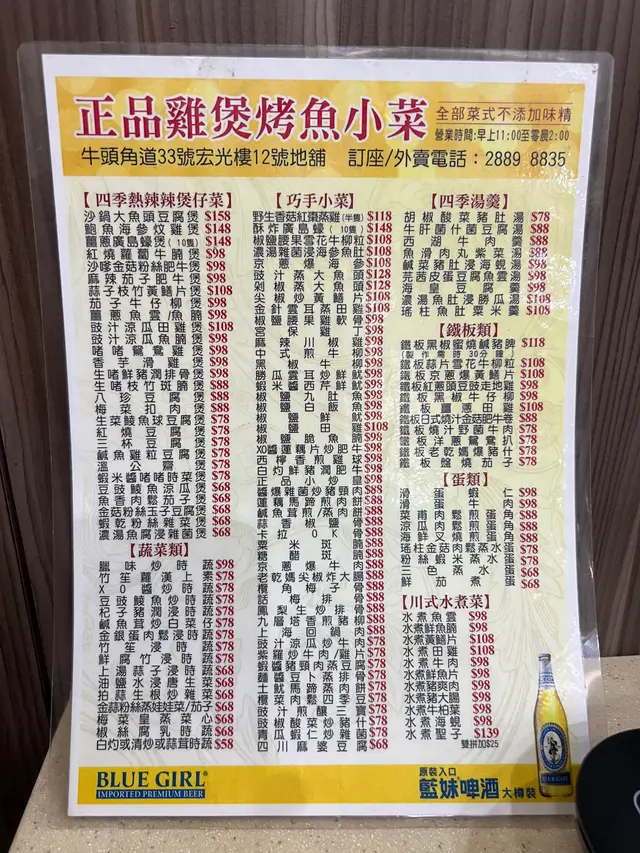 正品雞煲烤魚小菜
全部菜式不添加味精
營業時間:早上11:00至零晨2:00
牛頭角道33號宏光樓12號地舖 訂座/外賣電話:2889 8835
【四季熱辣辣煲仔菜】
沙鍋大魚頭豆腐煲 $158
鮑魚海參炆雞煲 $148
薑蔥廣島蠔煲(10隻) $148
紅燒蘿蔔牛腩煲 $98
沙嗲金菇粉絲肥牛煲 $98
麻辣茄子肥牛煲 $98
蒜子枝竹黃鱔片煲 $108
茄子牛仔柳煲 $98
薑蔥魚雲/魚腩煲 $98
豉汁涼瓜田雞煲 $108
豉汁涼瓜魚腩煲 $98
啫啫鴛鴦雞煲 $98
香芋滑雞煲 $98
生啫鮮豬潤滑雞煲 $98
生啫枝竹斑腩煲 $88
八珍豆腐煲 $88
梅菜扣肉煲 $88
生菜鯪魚球豆腐煲 $78
紅燒豆腐煲 $78
三杯豆腐煲 $78
鹹魚雞粒豆腐煲 $78
溫公齋煲 $78
蝦米醬啫啫時菜煲 $78
豆豉鯪魚涼瓜煲 $68
魚香肉鬆茄子煲 $68
金菇粉絲玉子豆腐煲 $68
蝦乾粉絲雜菜煲 $68
濃湯魚腐浸雜菌煲 $68
【蔬菜類】
臘味炒時蔬 $98
竹笙羅漢上素 $78
XO醬炒時蔬 $78
豆豉鯪魚炒時蔬 $78
杞子豬潤浸時蔬 $78
鹹魚茸炒白菜仔 $78
金銀蛋肉鬆浸時蔬 $78
竹笙浸時蔬 $78
鮮腐竹浸時蔬 $78
上湯蒜子浸時蔬 $68
油鹽水浸唐生菜 $68
拍蒜生根炒雜菜 $68
金蒜粉絲蒸娃娃菜/茄子 $68
梅菜皇蒸菜心 $68
椒絲腐乳時蔬 $68
白灼或清炒或蒜茸時蔬 $58
【巧手小菜】
野生香菇紅棗蒸雞(半隻) $118
酥炸廣島蠔(10隻) $148
椒鹽腰果雪花牛柳粒 $108
濃湯雜菌浸海參魚肚 $108
京蔥爆海參 $108
豉汁蒸大魚頭 $128
剁椒蒸大魚頭 $128
尖椒炒黃鱔片 $108
金針雲耳蒸田雞 $108
椒鹽腰果雞軟骨 $98
宮保雞丁 $98
麻辣川椒雞 $98
中式煎牛柳 $98
黑椒牛柳 $98
勝瓜雲耳炒鮮魷 $98
蝦米醬西芹鮮魷 $98
椒鹽九肚魚 $98
椒鹽白飯魚 $98
椒鹽鮮魷 $98
椒鹽田雞 $108
椒鹽脆魚腩 $98
XO醬蓮藕片炒肥牛 $98
西檸香煎雞球 $98
白灼鮮豬潤肥牛 $98
正品小炒皇 $98
醬爆雜菌炒豬頸肉 $88
蓮藕馬蹄煎肉餅 $88
鹹魚茸煎/蒸肉餅 $88
蒜香椒鹽骨 $88
卡拉OK骨 $88
粟米斑腩 $88
糖醋斑腩 $88
京蔥爆牛肉 $88
老乾媽尖椒炸大腸 $88
欖角梅子骨 $88
話梅排骨 $88
鳳梨生炒排骨 $88
九層塔香煎豬柳 $88
上海回鍋肉 $88
豉汁涼瓜炒牛肉 $78
紫羅炒牛肉/雞片 $78
蝦醬豬頸肉蒸豆腐 $78
麵醬豆卜蒸排骨 $78
土魷馬蹄蒸肉餅 $78
欖菜肉鬆四季豆 $78
豉汁煎釀三寶 $78
豉椒酸菜炒豬什 $78
青瓜蝦仁炒雜菌 $78
四川麻婆豆腐 $68
【四季湯羹】
胡椒酸菜豬肚湯 $78
牛肝菌什菌豆腐湯 $88
西湖牛肉羹 $88
魚滑肉丸紫菜湯 $88
鹹菜豬肚浸海蜆湯 $98
芫茜皮蛋豆腐魚雲湯 $98
海皇豆腐羹 $98
濃湯魚肚浸勝瓜湯 $108
瑤柱魚肚粟米羹 $108
【鐵板類】
鐵板黑椒蜜燒鹹豬脾 $118
(製作需時30分鐘)
鐵板蒜片雪花牛柳粒 $108
鐵板京蔥爆黃鱔片 $108
鐵板紅蔥頭豆豉走地雞 $98
鐵板黑椒牛仔柳 $98
鐵板薑蔥田雞 $108
鐵板日式燒汁金菇肥牛卷 $88
鐵板燒汁野菌牛肉 $78
鐵板洋蔥鴛鴦扒 $78
鐵板老乾媽爆豬什 $78
鐵板盤燒茄子 $78
【蛋類】
滑蛋蝦仁 $98
滑蛋牛肉 $98
菜甫肉鬆煎蛋角 $88
涼瓜肉鬆煎蛋角 $88
海鮮叉燒煎蛋角 $88
瑤柱金菇肉鬆蒸水蛋 $78
粉絲蝦米蒸水蛋 $78
三色蒸水蛋 $68
鮮茄煮蛋 $68
【川式水煮菜】
水煮魚雲 $98
水煮鮮魚腩 $98
水煮黃鱔片 $108
水煮田雞 $108
水煮牛肉 $98
水煮鮮魚片 $98
水煮豬爽肉 $98
水煮豬大腸 $98
水煮牛柏葉 $98
水煮海蜆 $98
水煮聖子 $139
雙拼加$25
BLUE GIRL®
IMPORTED PREMIUM BEER
原裝入口
藍妹啤酒 大樽裝
BLUE GIRL